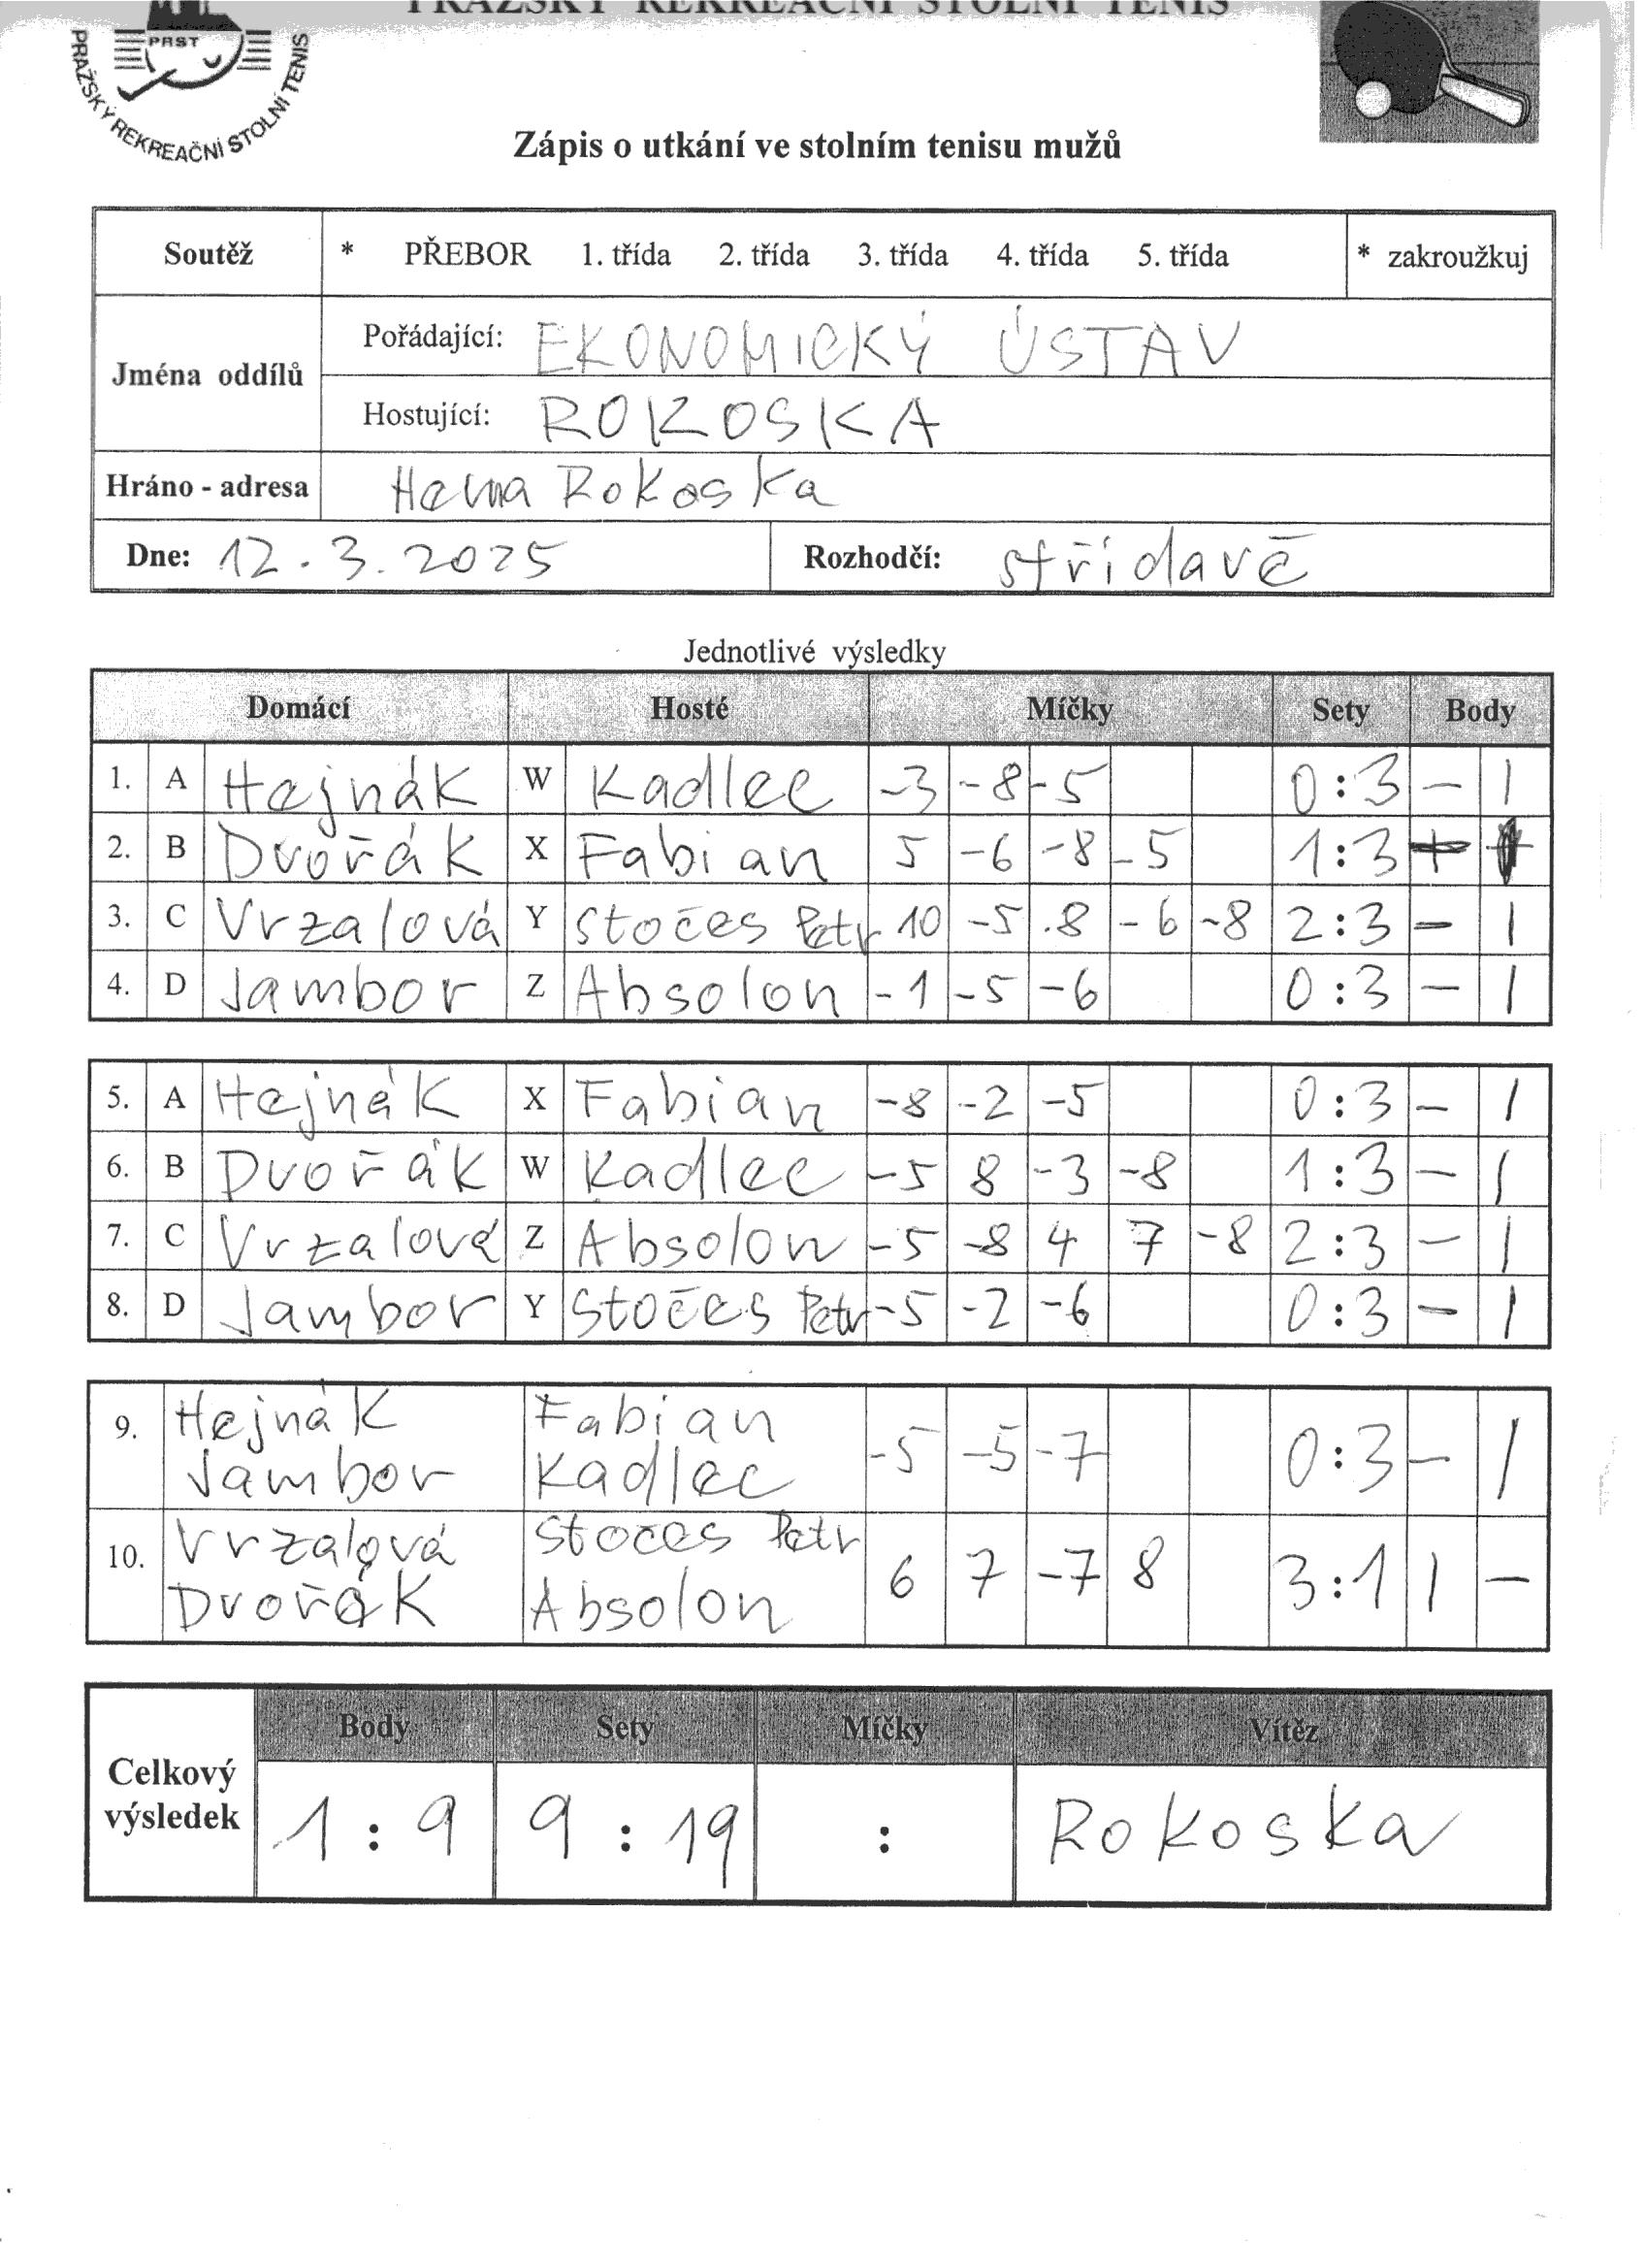 PRAŽSKÝ REKREAČNÍ STOLNÍ TENIS
PRST
PRAŽSKÝ REKREAČNÍ STOLNÍ TENIS
Zápis o utkání ve stolním tenisu mužů
Soutěž * PŘEBOR 1. třída 2. třída 3. třída 4. třída 5. třída * zakroužkuj
Jména oddílů
Pořádající: EKONOMICKÝ ÚSTAV
Hostující: ROKOSKA
Hráno - adresa Herna Rokoska
Dne: 12.3.2025 Rozhodčí: střídavě
Jednotlivé výsledky
Domácí Hosté Míčky Sety Body
1. A Hejnák W Kadlec -3 -8 -5 0:3 - 1
2. B Dvořák X Fabian 5 -6 -8 -5 1:3
3. C Vrzalová Y Stočes Petr 10 -5 8 -6 -8 2:3 - 1
4. D Jambor Z Absolon -1 -5 -6 0:3 - 1
5. A Hejnák X Fabian -8 -2 -5 0:3 - 1
6. B Dvořák W Kadlec -5 8 -3 -8 1:3 - 1
7. C Vrzalová Z Absolon -5 -8 4 7 -8 2:3 - 1
8. D Jambor Y Stočes Petr -5 -2 -6 0:3 - 1
9. Hejnák Jambor Fabian Kadlec -5 -5 -7 0:3 - 1
10. Vrzalová Dvořák Stočes Petr Absolon 6 7 -7 8 3:1 1 -
Celkový výsledek
Body Sety Míčky Vítěz
1:9 9:19 : Rokoska